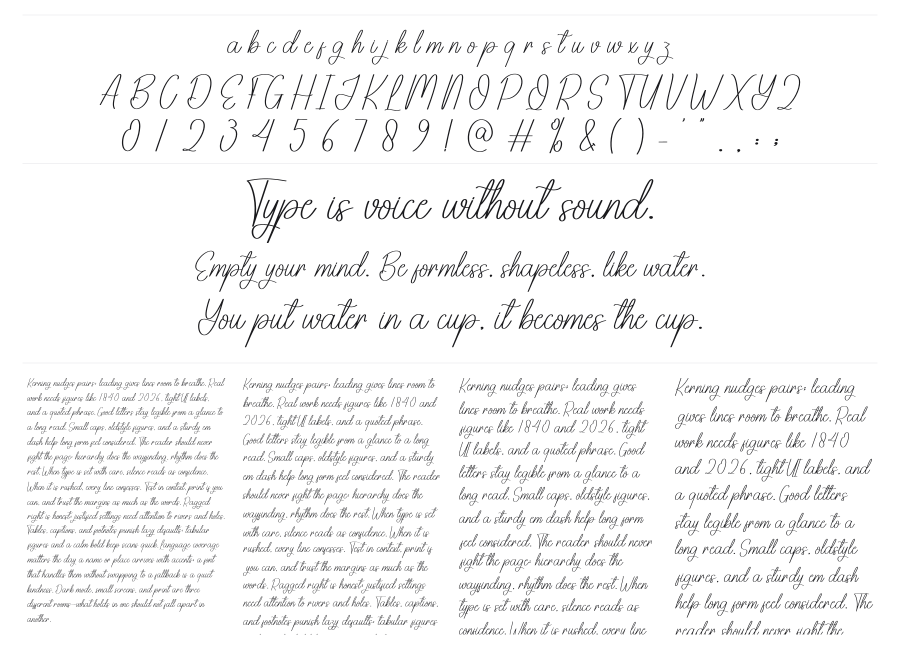 a b c d e f g h i j k l m n o p q r s t u v w x y z
A B C D E F G H I J K L M N O P Q R S T U V W X Y Z
0 1 2 3 4 5 6 7 8 9 ! @ # % & ( ) - ' " . , : ;
Type is voice without sound.
Empty your mind. Be formless, shapeless, like water.
You put water in a cup, it becomes the cup.
Kerning nudges pairs; leading gives lines room to breathe. Real
work needs figures like 1840 and 2026, tight UI labels,
and a quoted phrase. Good letters stay legible from a glance to
a long read. Small caps, oldstyle figures, and a sturdy em
dash help long form feel considered. The reader should never
fight the page: hierarchy does the wayfinding, rhythm does the
rest. When type is set with care, silence reads as confidence.
When it is rushed, every line confesses. Test in context, print if you
can, and trust the margins as much as the words. Ragged
right is honest; justified settings need attention to rivers and holes.
Tables, captions, and footnotes punish lazy defaults: tabular
figures and a calm bold keep scans quick. Language coverage
matters the day a name or place arrives with accents: a font
that handles them without swapping to a fallback is a quiet
kindness. Dark mode, small screens, and print are three
different rooms—what holds in one should not fall apart in
another.
Kerning nudges pairs; leading gives lines room to
breathe. Real work needs figures like 1840 and
2026, tight UI labels, and a quoted phrase.
Good letters stay legible from a glance to a long
read. Small caps, oldstyle figures, and a sturdy
em dash help long form feel considered. The reader
should never fight the page: hierarchy does the
wayfinding, rhythm does the rest. When type is set
with care, silence reads as confidence. When it is
rushed, every line confesses. Test in context, print if
you can, and trust the margins as much as the
words. Ragged right is honest; justified settings
need attention to rivers and holes. Tables, captions,
and footnotes punish lazy defaults: tabular figures
Kerning nudges pairs; leading gives
lines room to breathe. Real work needs
figures like 1840 and 2026, tight
UI labels, and a quoted phrase. Good
letters stay legible from a glance to a
long read. Small caps, oldstyle figures,
and a sturdy em dash help long form
feel considered. The reader should never
fight the page: hierarchy does the
wayfinding, rhythm does the rest. When
type is set with care, silence reads as
confidence. When it is rushed, every line
Kerning nudges pairs; leading
gives lines room to breathe. Real
work needs figures like 1840
and 2026, tight UI labels, and
a quoted phrase. Good letters
stay legible from a glance to a
long read. Small caps, oldstyle
figures, and a sturdy em dash
help long form feel considered. The
reader should never fight the